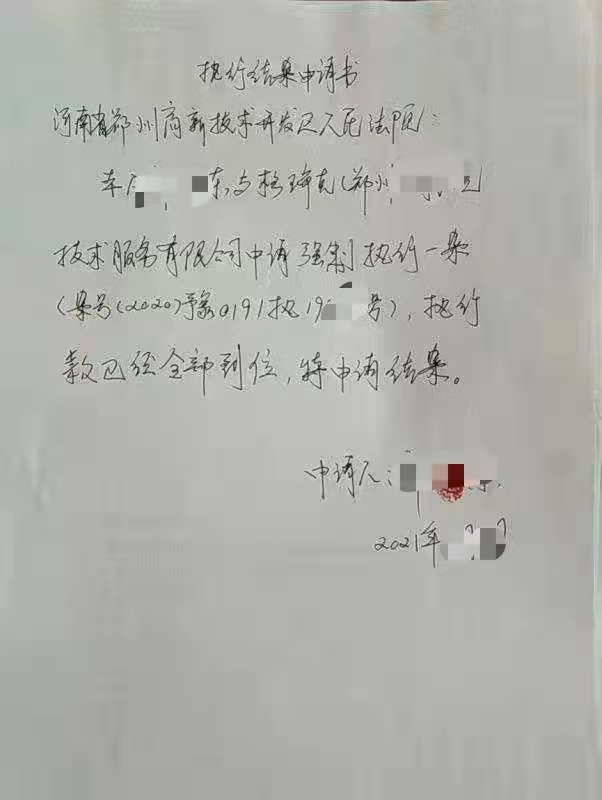 执行结案申请书
河南省郑州高新技术开发区人民法院:
车 东与格瑞克(郑州
技术服务有限公司申请强制执行一案
(案号(2020)豫0191执19 号),执行
款已经全部到位,特申请结案。
申请人:
2021年